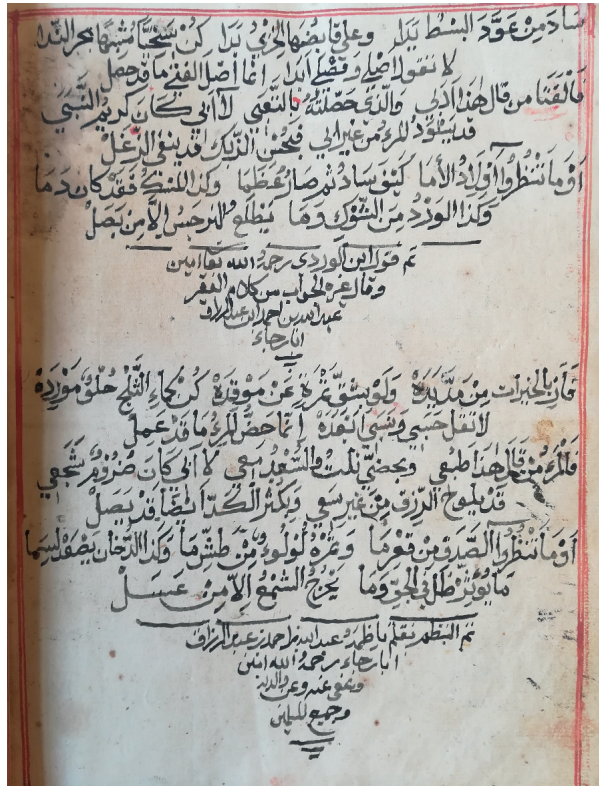 ساد من عود البسط يدا وعلى قابضها الخزي بدا كن سخيا مشبها بحر الندا
لا تقول اصلي وفصلي ابدا انما اصل الفتى ما قد حصل
فالفتى من قال هذا ادبي والذي حصلته بالتعبي لا ابي كان كريم النسبي
قد يسود المرء من غير ابي فبحسن السبك قد ينفى الزغل
او ما تنظروا اولاد الأما كيف ساد ثم صار عظما وكذا المسك فقد كان دما
وكذا الورد من الشوك وما يطلع النرجس الا من بصل
تم قول ابن الوردي رحمه الله تعا امين
وقال غيره الجواب من كلام الفقير
عبد الله بن احمد ابن عبد الرزاق
ابا رجاء
فأن بالخيرات من مد يده ولو بشق تمرة عن موقده كن كماء الثلج حلو مورده
لا تقل حسبي ونسبي انقده إنما حض المرء ما قد عمل
فالمرء من قال هذا طبعي وبحضي نلت والسعد معي لا ابي كان ضروم شجعي
قد يلوح الرزق من غير سعي وبكثر الكد ايضا قد يصل
او ما تنظروا الصدق من قعر ما وتره لولوء من طش ما وكذا الدخان يصعد لسما
ما يوثر ظل في الجو وما يخرج الشمع الا من عسل
تم النظم بقلم ناظمه عبد الله بن احمد بن عبد الرزاق
ابا رجاء رحمه الله امين
وعفى عنه وعن والديه
وجميع المسلمين